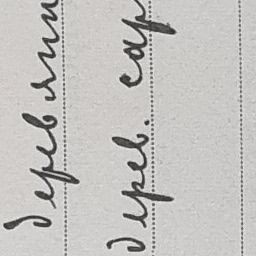 деревянн
дерев. сар